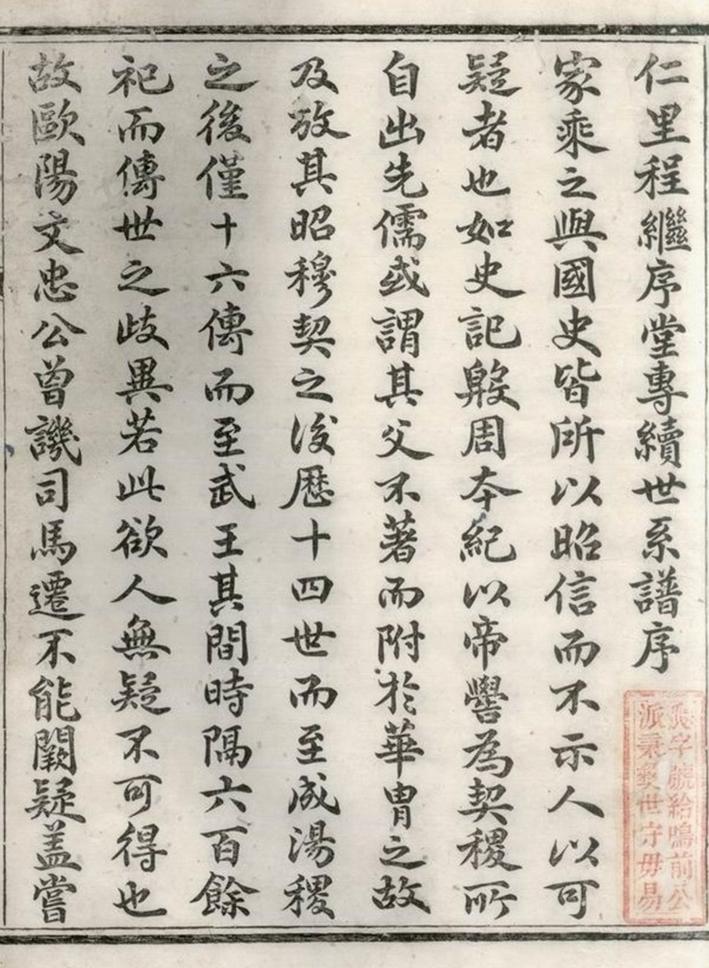 仁里程繼序堂專續世系譜序
家乘之與國史皆所以昭信而不示人以可
疑者也如史記殷周本紀以帝嚳為契稷所
自出先儒或謂其父不著而附於華胄之故
及攷其昭穆契之後歷十四世而至成湯稷
之後僅十六傳而至武王其間時隔六百餘
祀而傳世之歧異若此欲人無疑不可得也
故歐陽文忠公曾譏司馬遷不能闕疑盖嘗
字號給鳴前公
派秉彝世守毋易